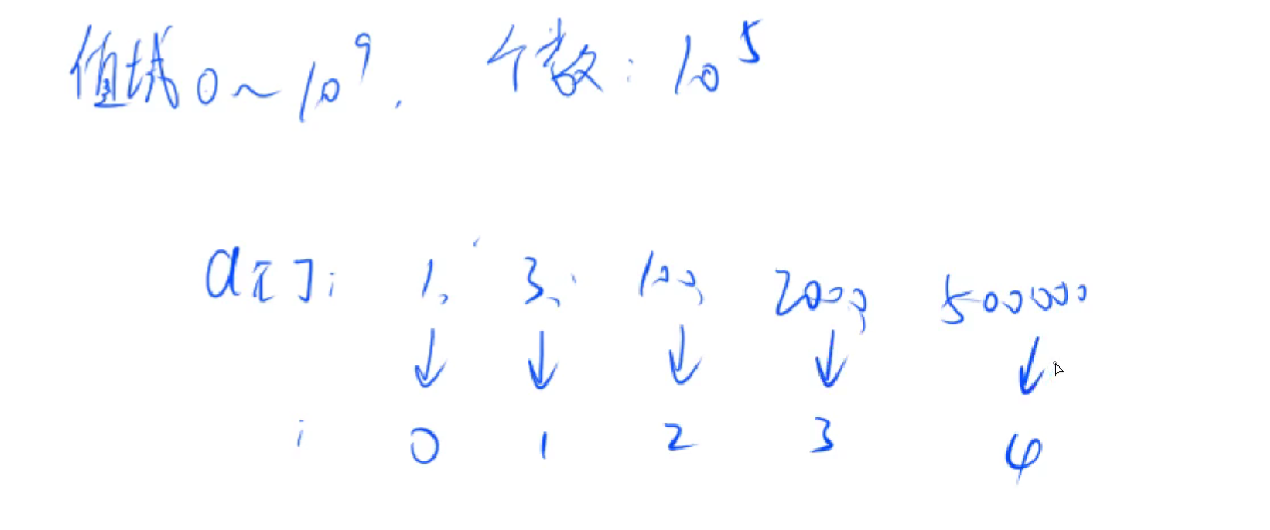 值域 0~10⁹. 个数: 10⁵
a[]: 1, 3, 100, 2000, 500000
↓ ↓ ↓ ↓ ↓
i 0 1 2 3 4